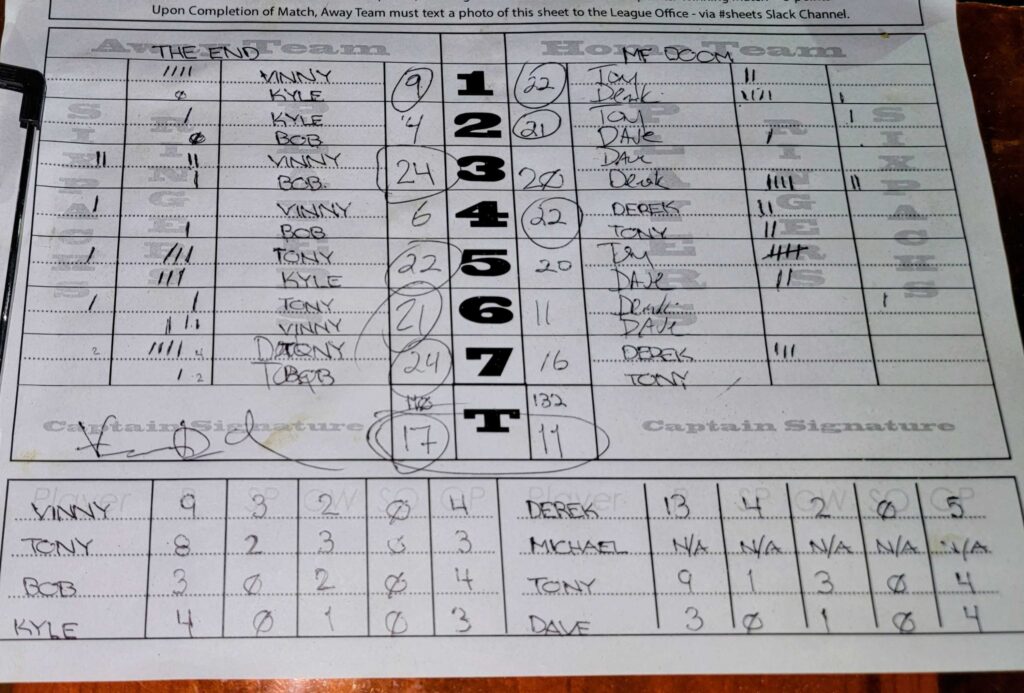 Upon Completion of Match, Away Team must text a photo of this sheet to the League Office - via #sheets Slack Channel.
Away Team Home Team
THE END MF DOOM
|||| VINNY 9 1 22 Tony ||
Ø KYLE Derek |||| |
| KYLE 4 2 21 Tony |
Ø BOB DAVE |
|| || VINNY 24 3 20 DAVE
| BOB Derek |||| ||
| VINNY 6 4 22 DEREK ||
| BOB TONY ||
| /// TONY 22 5 20 Tony
||| KYLE DAVE ||
| | TONY 21 6 11 Derek |
| || VINNY DAVE
2 |||| 4 TONY 24 7 16 DEREK |||
| 2 BOB TONY
T 132
Captain Signature 17 11 Captain Signature
SIXPACKS RINGERS PLAYERS PLAYERS RINGERS SIXPACKS
Player R SP GW SO GP Player R SP GW SO GP
VINNY 9 3 2 Ø 4 DEREK 13 4 2 Ø 5
TONY 8 2 3 0 3 MICHAEL N/A N/A N/A N/A N/A
BOB 3 Ø 2 Ø 4 TONY 9 1 3 Ø 4
KYLE 4 Ø 1 Ø 3 DAVE 3 Ø 1 Ø 4